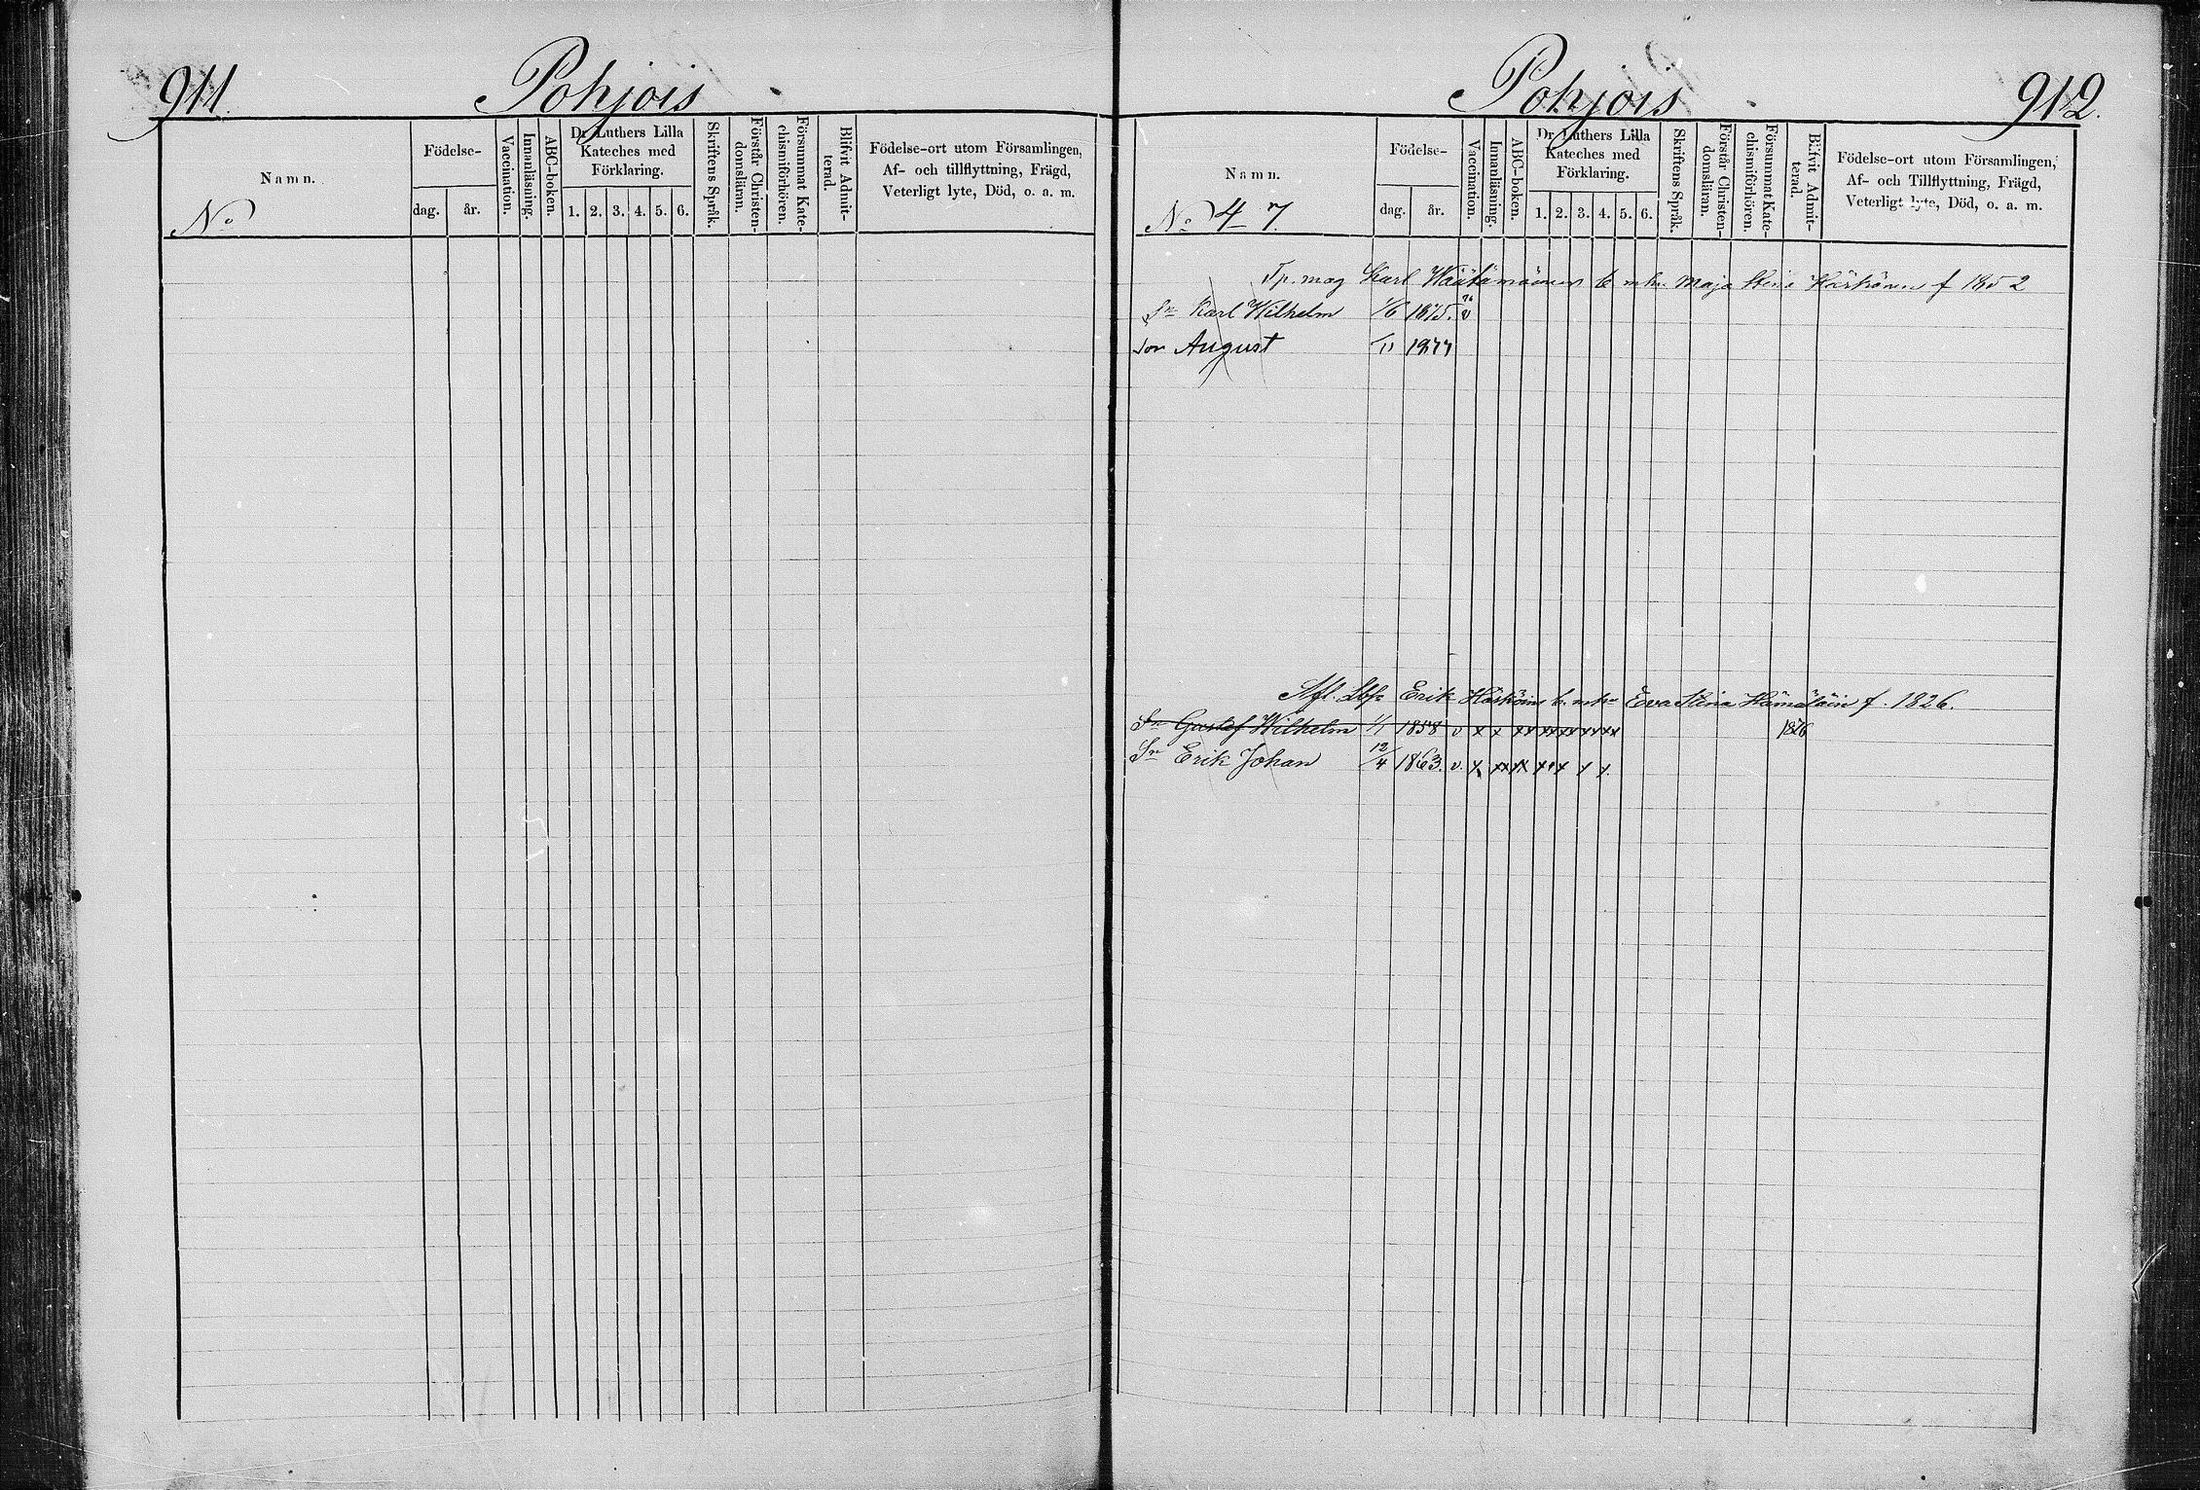 911. Pohjois
Namn.
No
Födelse-
dag. år.
Vaccination.
Innanläsning.
ABC-boken.
Dr Luthers Lilla
Kateches med
Förklaring.
1. 2. 3. 4. 5. 6.
Skriftens Språk.
Förstår Christen-
domsläran.
Försummat Kate-
chismiförhören.
Blifvit Admit-
terad.
Födelse-ort utom Församlingen,
Af- och tillflyttning, Frägd,
Veterligt lyte, Död, o. a. m.
Pohjois 912.
Namn.
No 4 7.
Födelse-
dag. år.
Vaccination.
Innanläsning.
ABC-boken.
Dr Luthers Lilla
Kateches med
Förklaring.
1. 2. 3. 4. 5. 6.
Skriftens Språk.
Förstår Christen-
domsläran.
Försummat Kate-
chismiförhören.
Blifvit Admit-
terad.
Födelse-ort utom Församlingen,
Af- och Tillflyttning, Frägd,
Veterligt lyte, Död, o. a. m.
Karl Wäätämöinen Maja Stina f 1852
Sn Karl Wilhelm 1/6 1875. v
Son August 1877
Afl. Erik Eva Stina Hämäläin f. 1826.
Sn Gustaf Wilhelm 1/1 1858 v x x xx xx xx xx xx 1876
Sn Erik Johan 12/4 1863. v. x xx xx xxx x x.